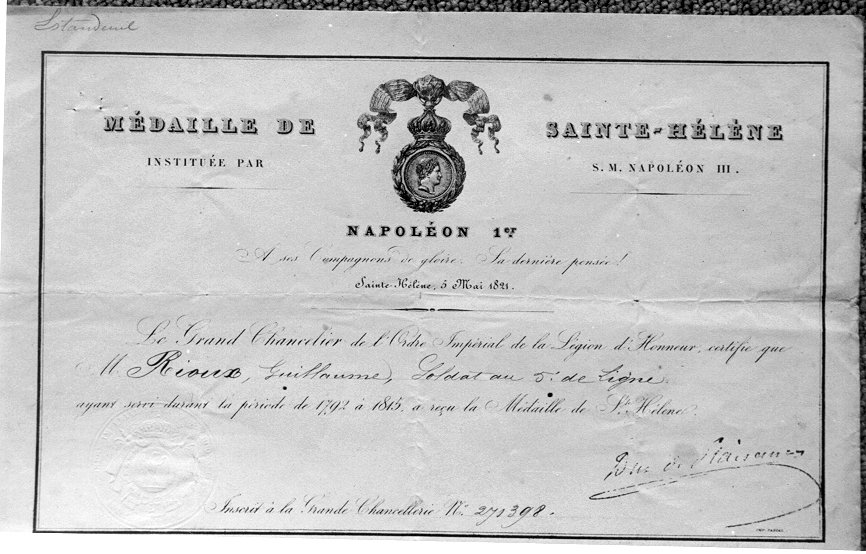 MÉDAILLE DE SAINTE-HÉLÈNE
INSTITUÉE PAR S. M. NAPOLÉON III.
NAPOLÉON 1er
A ses Compagnons de gloire. Sa dernière pensée!
Sainte-Hélène, 5 Mai 1821.
Le Grand Chancelier de l'Ordre Impérial de la Légion d'Honneur, certifie que
M. Rioux, Guillaume, Soldat au 5e de Ligne
ayant servi durant la période de 1792 à 1815, a reçu la Médaille de Ste Hélène.
Duc de Plaisance
Inscrit à la Grande Chancellerie No. 271398.